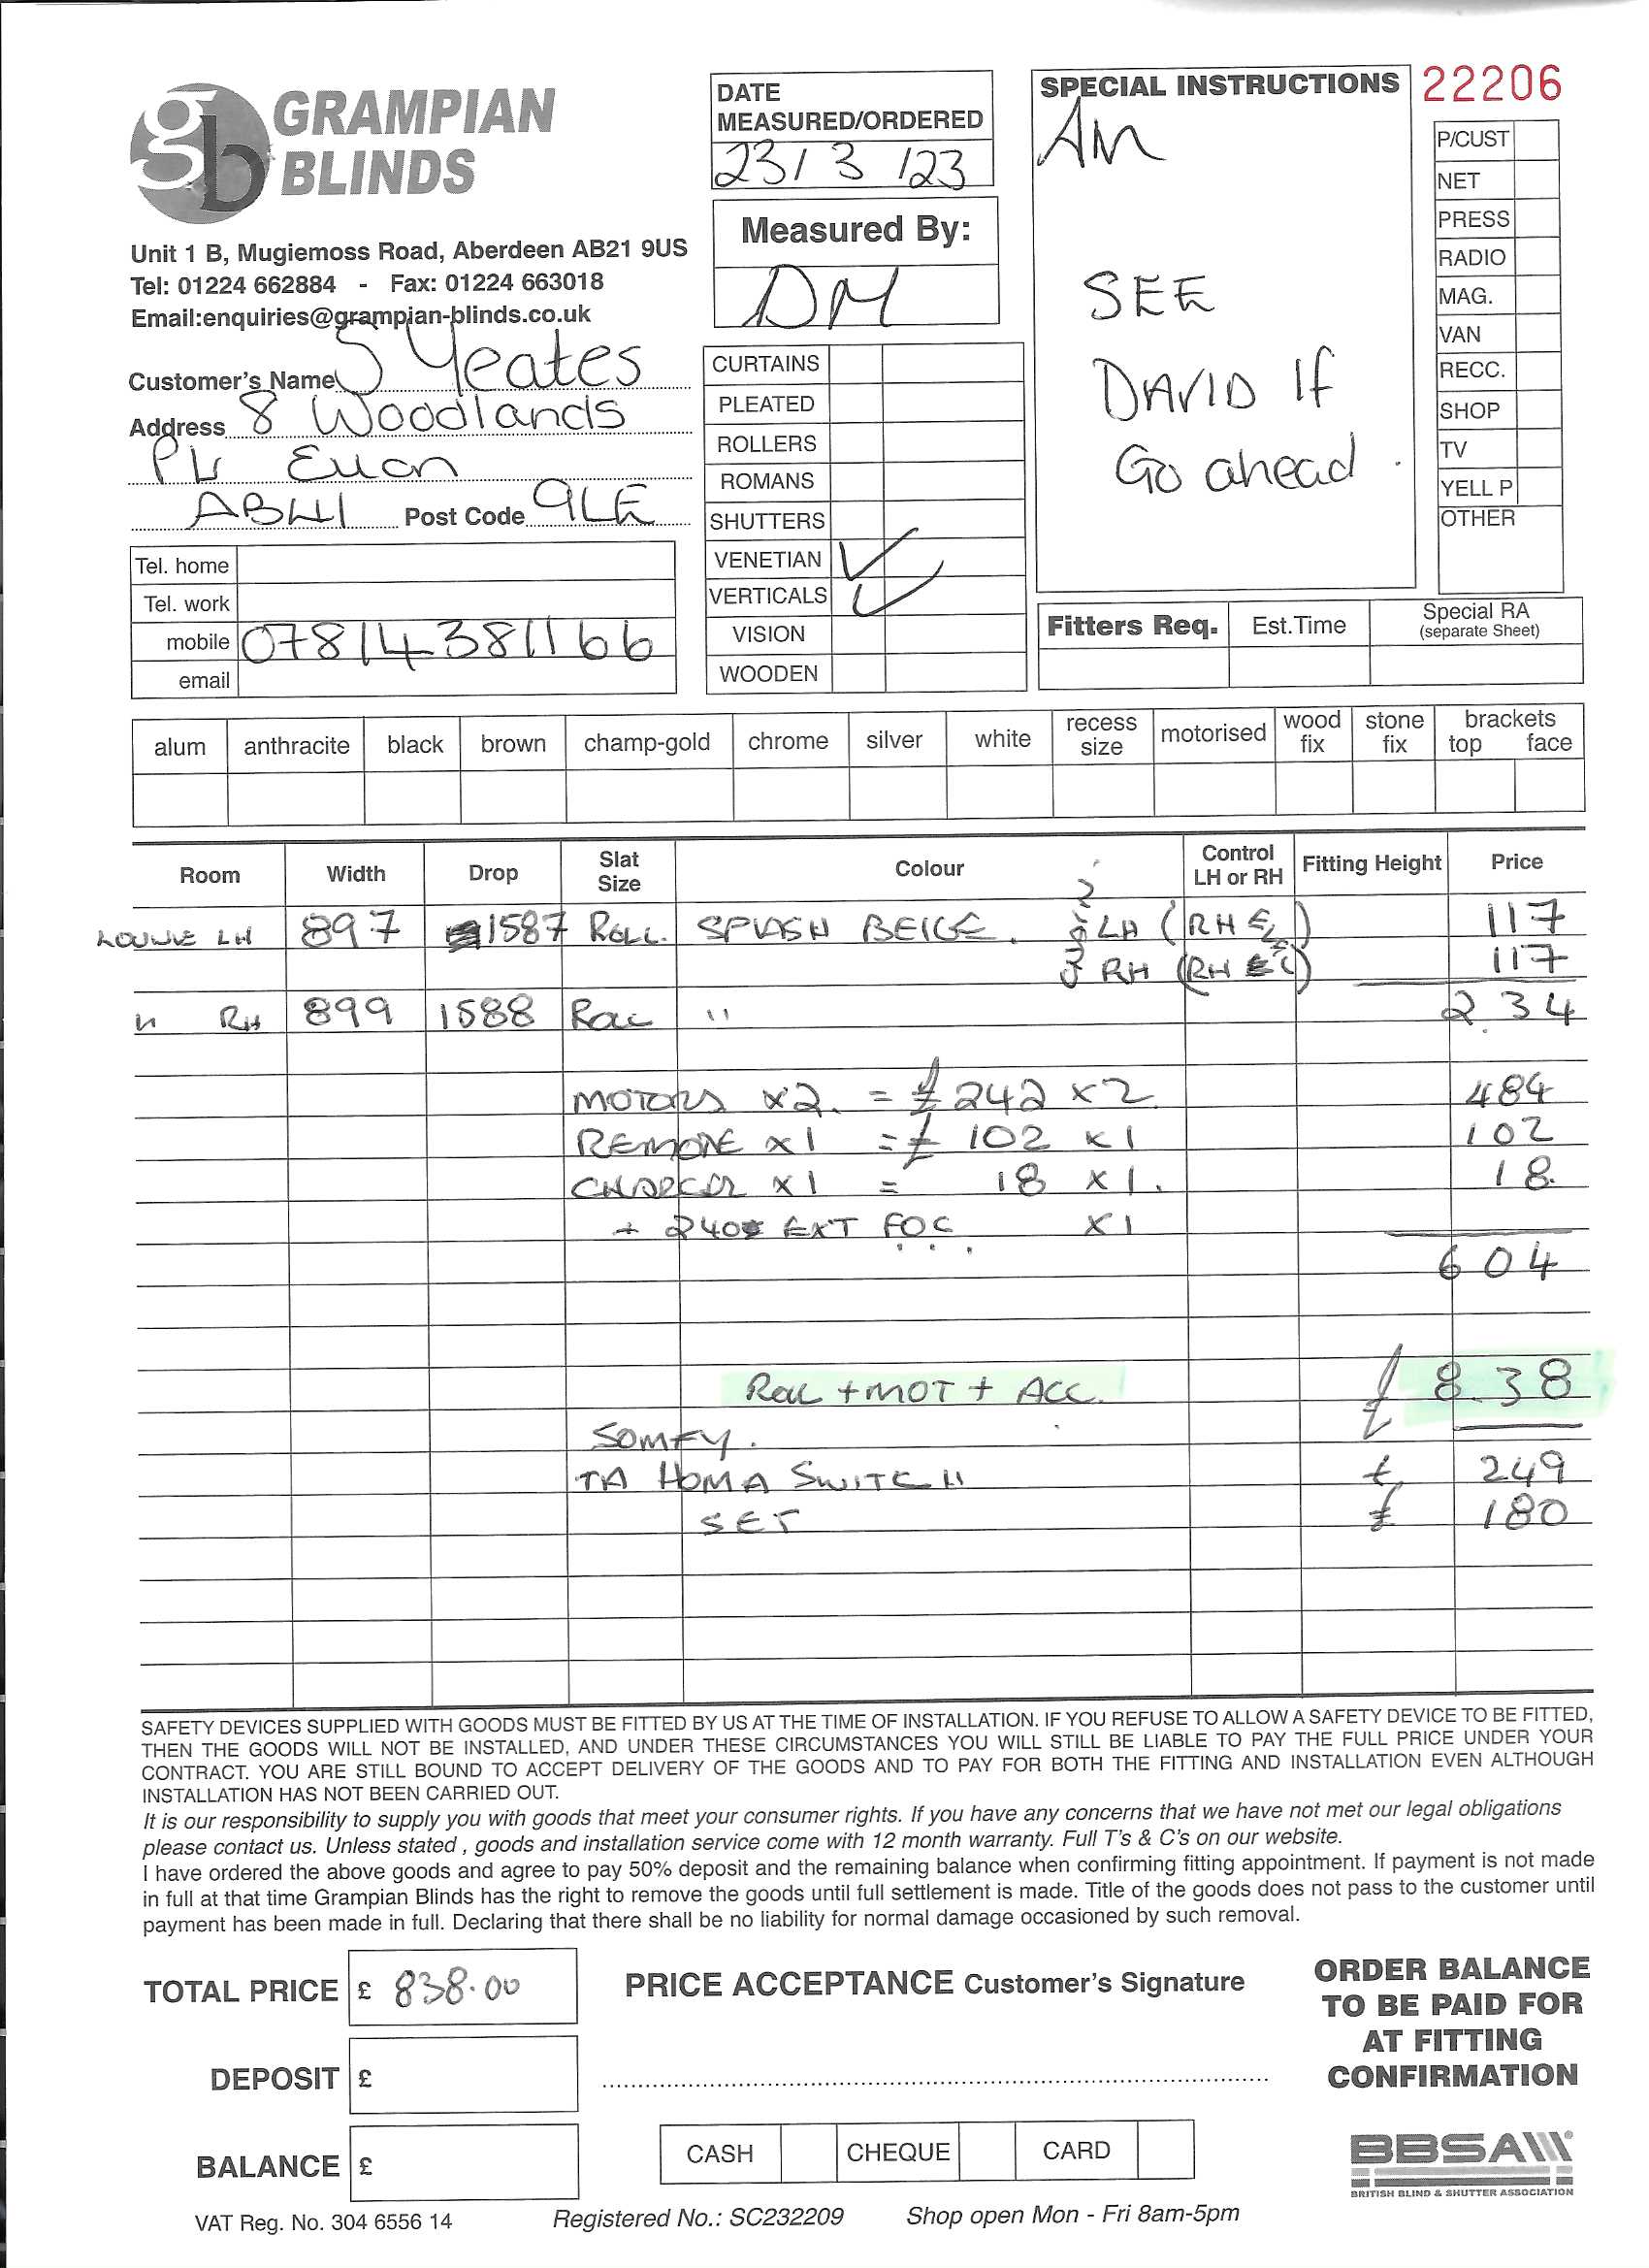 GRAMPIAN
BLINDS
Unit 1 B, Mugiemoss Road, Aberdeen AB21 9US
Tel: 01224 662884 - Fax: 01224 663018
Email:enquiries@grampian-blinds.co.uk
DATE
MEASURED/ORDERED
23/3/23
Measured By:
DM
SPECIAL INSTRUCTIONS
AM
SEE
DAVID If
Go ahead.
22206
P/CUST
NET
PRESS
RADIO
MAG.
VAN
RECC.
SHOP
TV
YELL P
OTHER
Customer's Name S Yeates
Address 8 Woodlands
Pl Ellon
AB41 Post Code 9LE
Tel. home
Tel. work
mobile 07814381166
email
CURTAINS
PLEATED
ROLLERS
ROMANS
SHUTTERS
VENETIAN ✓
VERTICALS ✓
VISION
WOODEN
Fitters Req. Est.Time Special RA
(separate Sheet)
alum anthracite black brown champ-gold chrome silver white recess size motorised wood fix stone fix brackets top face
Room Width Drop Slat Size Colour Control LH or RH Fitting Height Price
LH 897 1587 ROLL SPLASH BEIGE. LH (RH 117
RH (RH 117
" RH 899 1588 ROLL " 234
MOTORS x2. = £242 x2 484
REMOTE x1 = £102 x1 102
CHARGER x1 = 18 x1. 18.
+ EXT FOC x1
604
ROLL + MOT + ACC. £ 838
SOMFY.
TA HOMA SWITCH £ 249
SET £ 180
SAFETY DEVICES SUPPLIED WITH GOODS MUST BE FITTED BY US AT THE TIME OF INSTALLATION. IF YOU REFUSE TO ALLOW A SAFETY DEVICE TO BE FITTED,
THEN THE GOODS WILL NOT BE INSTALLED, AND UNDER THESE CIRCUMSTANCES YOU WILL STILL BE LIABLE TO PAY THE FULL PRICE UNDER YOUR
CONTRACT. YOU ARE STILL BOUND TO ACCEPT DELIVERY OF THE GOODS AND TO PAY FOR BOTH THE FITTING AND INSTALLATION EVEN ALTHOUGH
INSTALLATION HAS NOT BEEN CARRIED OUT.
It is our responsibility to supply you with goods that meet your consumer rights. If you have any concerns that we have not met our legal obligations
please contact us. Unless stated , goods and installation service come with 12 month warranty. Full T's & C's on our website.
I have ordered the above goods and agree to pay 50% deposit and the remaining balance when confirming fitting appointment. If payment is not made
in full at that time Grampian Blinds has the right to remove the goods until full settlement is made. Title of the goods does not pass to the customer until
payment has been made in full. Declaring that there shall be no liability for normal damage occasioned by such removal.
TOTAL PRICE £ 838.00
DEPOSIT £
BALANCE £
PRICE ACCEPTANCE Customer's Signature
CASH CHEQUE CARD
ORDER BALANCE
TO BE PAID FOR
AT FITTING
CONFIRMATION
BBSA
BRITISH BLIND & SHUTTER ASSOCIATION
VAT Reg. No. 304 6556 14 Registered No.: SC232209 Shop open Mon - Fri 8am-5pm